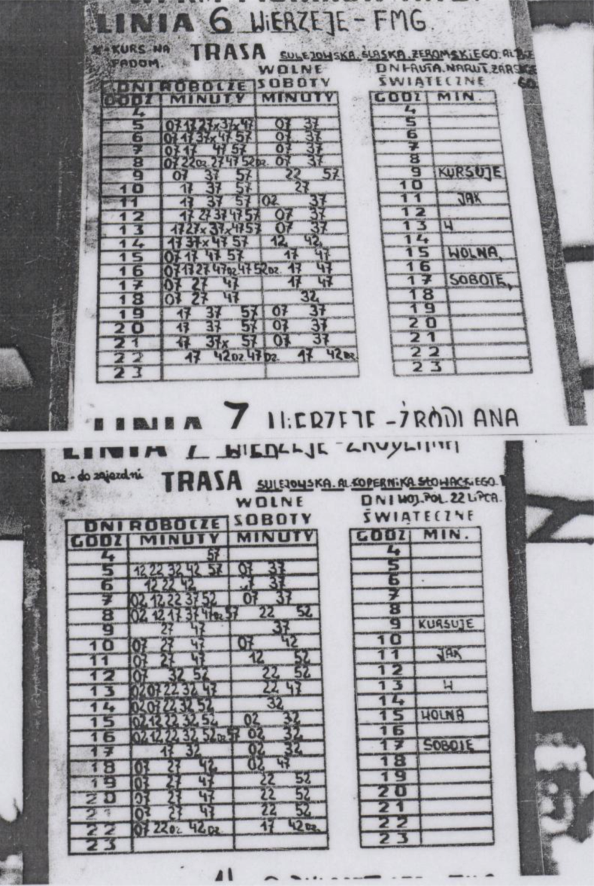 LINIA 6 WIERZEJE-FMG.
X-KURS NA RADOM. TRASA SULEJOWSKA.ŚLĄSKA.ŻEROMSKIEGO.AL
WOLNE DNI
DNI ROBOCZE SOBOTY ŚWIĄTECZNE
GODZ MINUTY MINUTY GODZ MIN.
4 4
5 07 17 27x 37x 47 07 37 5
6 07 17 37x 47 57 07 37 6
7 07 17 47 57 07 37 7
8 07 22Dz 27 47 52Dz. 07 37 8
9 07 37 57 22 57 9 KURSUJE
10 17 37 57 27 10
11 17 37 57 02 37 11 JAK
12 17 27 37 47 57 07 37 12
13 17 27x 37x 47 57 07 37 13 W
14 17 37x 47 57 12 42 14
15 07 17 47 57 17 47 15 WOLNĄ
16 07 17 27 47Dz 47 52Dz. 17 47 16
17 07 27 47 17 47 17 SOBOTĘ
18 07 27 47 32 18
19 17 37 57 07 37 19
20 17 37 57 07 37 20
21 17 37x 57 07 37 21
22 17 42Dz 47Dz 17 42Dz 22
23 23
LINIA 7 WIERZEJE-ŹRÓDLANA
LINIA 7 WIERZEJE-ŹRÓDLANA
Dz - do zajezdni TRASA SULEJOWSKA.AL.KOPERNIKA.SŁOWACKIEGO.
WOLNE DNI WOJ.POL. 22 LIPCA.
DNI ROBOCZE SOBOTY ŚWIĄTECZNE
GODZ MINUTY MINUTY GODZ MIN.
4 57 4
5 12 22 32 42 52 07 37 5
6 12 22 42 37 6
7 02 12 22 37 52 07 37 7
8 02 12 17 37 47Dz 57 22 52 8
9 27 47 37 9 KURSUJE
10 07 27 47 07 42 10
11 07 27 47 12 52 11 JAK
12 07 32 52 22 52 12
13 02 07 22 32 47 22 47 13 W
14 02 07 22 32 52 32 14
15 02 12 22 32 52 02 32 15 WOLNĄ
16 02 12 22 32 52Dz 57 02 32 16
17 17 32 02 32 17 SOBOTĘ
18 07 27 42 02 47 18
19 07 27 47 22 52 19
20 07 27 47 22 52 20
21 07 27 47 22 52 21
22 07 22Dz 42Dz 17 42Dz 22
23 23